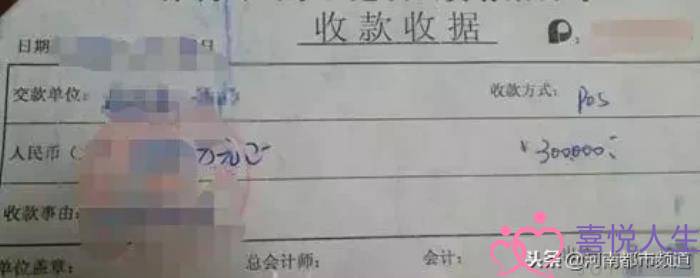 收款收据
日期
交款单位： 收款方式： Pos
人民币（ 万元正 ¥300000：
收款事由：
单位盖章： 总会计师： 会计：
喜悦人生
头条@河南都市频道